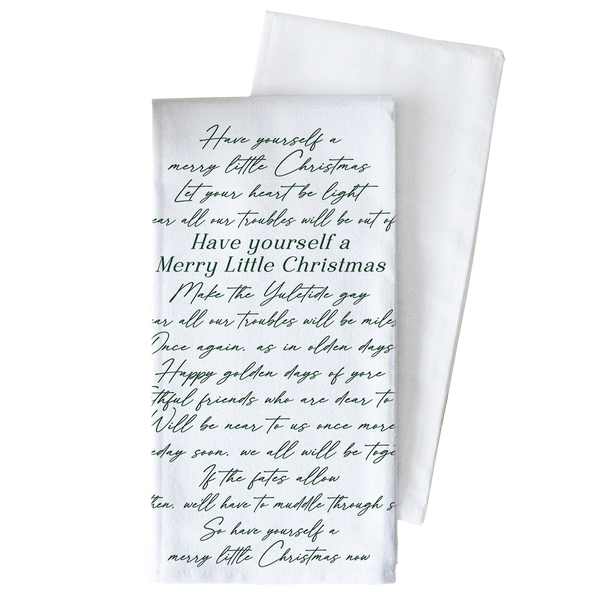 Have yourself a
merry little Christmas
Let your heart be light
ear all our troubles will be out of
Have yourself a
Merry Little Christmas
Make the Yuletide gay
ear all our troubles will be miles
Once again, as in olden days
Happy golden days of yore
thful friends who are dear to
Will be near to us once more
eday soon, we all will be toge
If the fates allow
then, we'll have to muddle through s
So have yourself a
merry little Christmas now